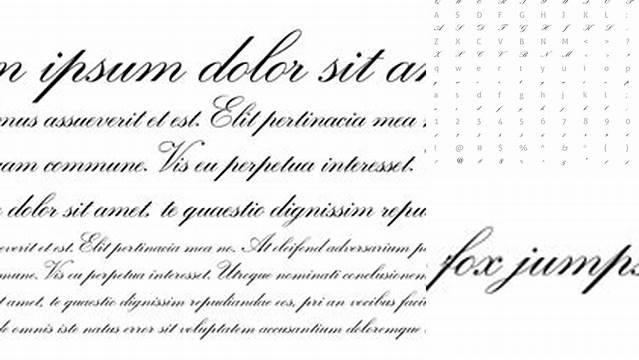 ipsum dolor sit
assueverit et est. Elit pertinacia mea
commune. Vis eu perpetua interesset.
dolor sit amet, te quaestio dignissim
et est. Elit pertinacia mea ne. At eleifend adversarium
Vis eu perpetua interesset. Utroque nominati
amet, te quaestio dignissim repudiandae eos, pri an vocibus
omnis iste natus error sit voluptatem accusantium doloremque
A S D F G H J K L :
Z X C V B N M < > ?
q w e r t y u i o p
a s d f g h j k l ;
1 2 3 4 5 6 7 8 9 0
! @ # $ % ^ & * ( )
fox jumps